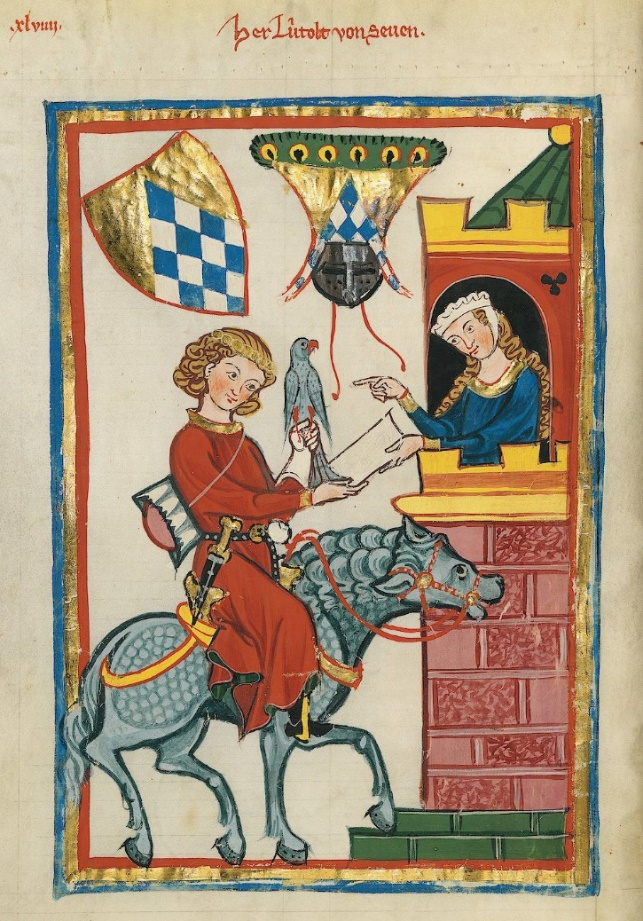 xlviiij.
her Lûtolt von seuen.